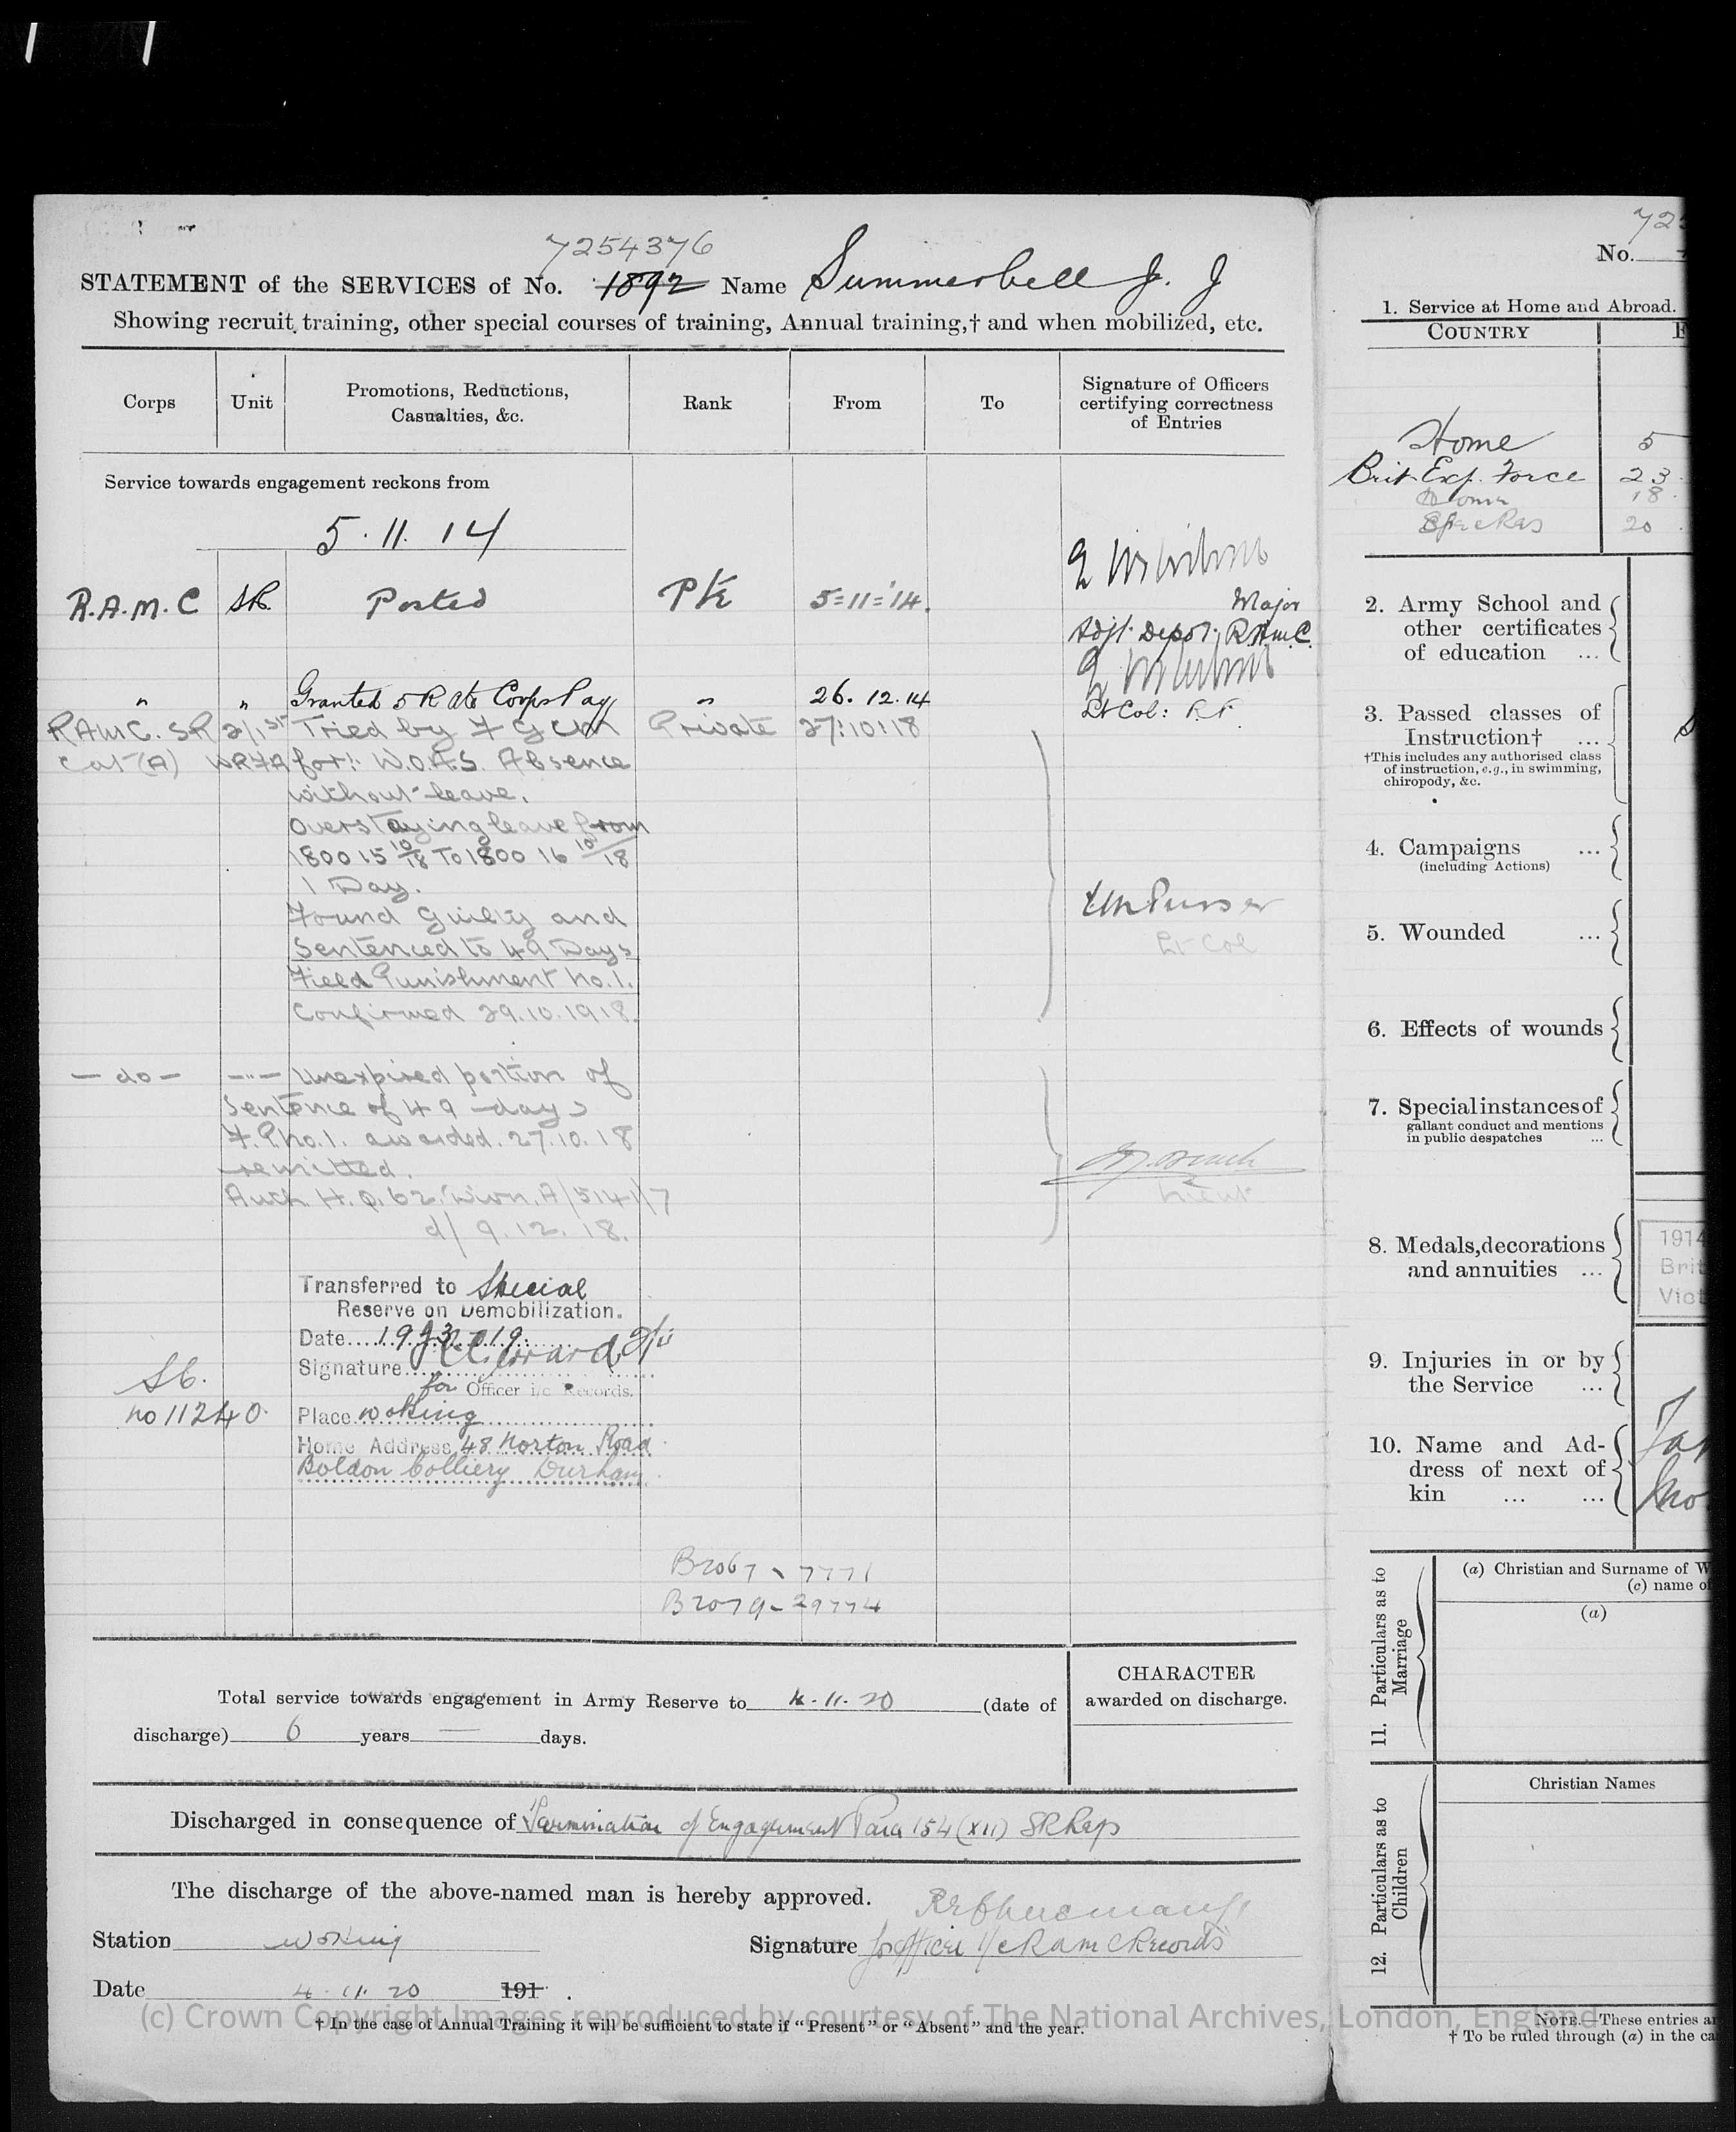 7254376
STATEMENT of the SERVICES of No. 1892 Name Summerbell J. J
Showing recruit training, other special courses of training, Annual training,† and when mobilized, etc.
Corps Unit Promotions, Reductions, Casualties, &c. Rank From To Signature of Officers certifying correctness of Entries
Service towards engagement reckons from
5.11.14
R.A.M.C SR. Posted Pte 5=11='14.
Major
Adjt. Depot. R.A.M.C.
" " Granted 5 R ate Corps Pay " 26.12.14
Lt Col:
RAMC. SR 2/1st Tried by F G CM Private 27:10:18
Cat (A) WRFA for:- W.O.A.S. Absence
without leave.
Overstaying leave from
1800 15 10/18 To 1800 16 10/18
1 Day.
Found Guilty and
Sentenced to 49 Days
Lt Col
Field Punishment No.1.
Confirmed 29.10.1918.
- do - -"- Unexpired portion of
Sentence of 49 days
F.P.No.1. awarded. 27.10.18
remitted.
Auth H.Q. 62 Divn. A/5141/7
Lieut
d/ 9.12.18.
Transferred to Special
Reserve on Demobilization.
Date
Signature
for Officer i/c Records.
No 11240. Place Woking
Home Address 48 Norton Road
Boldon Colliery Durham.
B2067 - 7771
B2079 - 29774
Total service towards engagement in Army Reserve to 4.11.20 (date of
discharge) 6 years — days.
CHARACTER
awarded on discharge.
Discharged in consequence of Termination of Engagement Para 154 (XII) SR Regs
The discharge of the above-named man is hereby approved.
Station Woking
Signature for Officer i/c RAMC Records
Date 4.11.20 191 .
† In the case of Annual Training it will be sufficient to state if "Present" or "Absent" and the year.
725
No.
1. Service at Home and Abroad.
COUNTRY F
Home 5
Brit. Exp. Force 23
Home 18
Spec Res 20
2. Army School and
other certificates
of education ...
3. Passed classes of
Instruction† ...
†This includes any authorised class
of instruction, e.g., in swimming,
chiropody, &c.
4. Campaigns ...
(including Actions)
5. Wounded ...
6. Effects of wounds
7. Special instances of
gallant conduct and mentions
in public despatches ...
8. Medals, decorations
and annuities ...
1914
Brit
Vict
9. Injuries in or by
the Service ...
10. Name and Ad-
dress of next of
kin ... ...
11. Particulars as to
Marriage
(a) Christian and Surname of W
(c) name of
(a)
12. Particulars as to
Children
Christian Names
NOTE.—These entries ar
† To be ruled through (a) in the ca
(c) Crown Copyright Images reproduced by courtesy of The National Archives, London, England